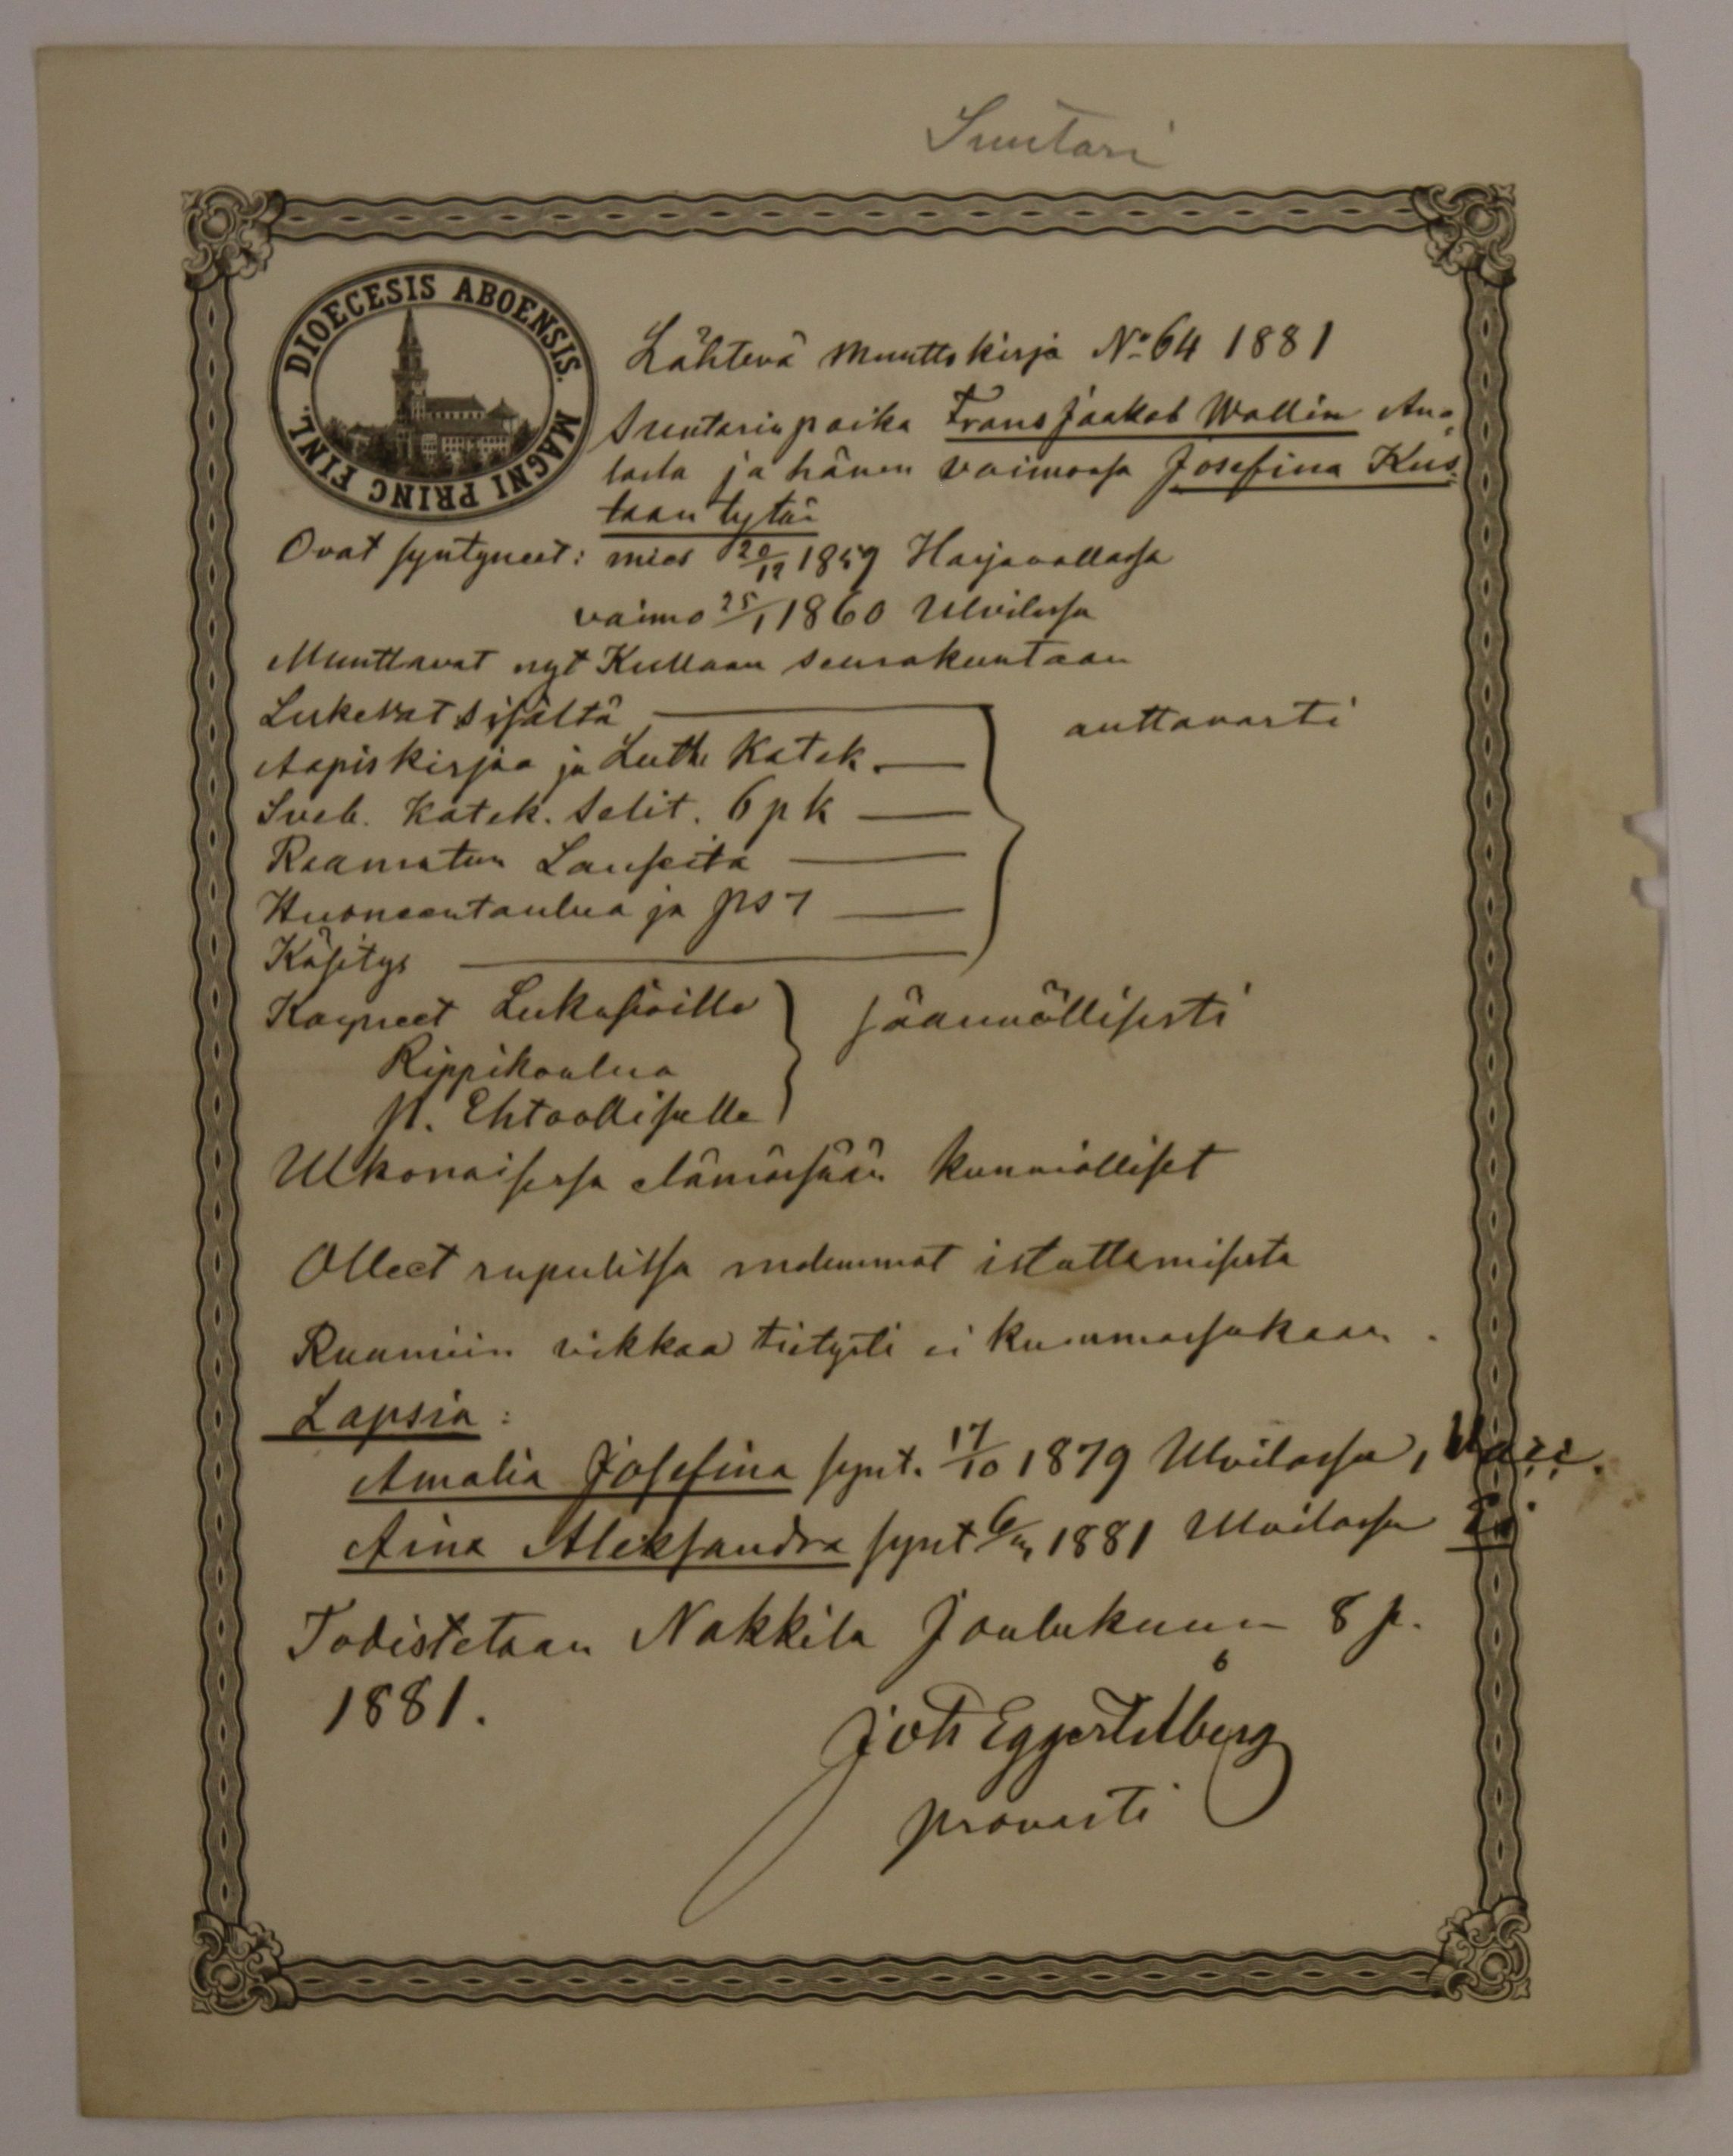 Suutari
DIOECESIS ABOENSIS. MAGNI PRINC FINL.
Lähtevä muuttokirja No 64 1881
Suutarinpoika Frans Jaakob Wallin Ano-
lasta ja hänen vaimonsa Josefina Kus-
taantytär
Ovat syntyneet: mies 20/12 1859 Harjavallassa
vaimo 25/1 1860 Ulvilassa
Muuttavat nyt Kullaan seurakuntaan
Lukevat sisältä
auttavasti
Aapiskirjaa ja Luth. Katek.
Sveb. Katek. Selit. 6 p k
Raamatun Lauseita
Huoneentaulua ja ps 7
Käsitys
Käyneet Lukusioilla
säännöllisesti
Rippikoulua
H. Ehtoollisella
Ulkonaisessa elämässään kunnialliset
Olleet rupulissa molemmat istuttamisesta
Ruumiin vikkaa tietysti ei kummassakaan.
Lapsia:
Amalia Josefina synt. 17/10 1879 Ulvilassa,
Aina Aleksandra synt 1881 Ulvilassa Ei
Todistetaan Nakkila Joulukuun 8 p.
1881.
Joh Eggert
provasti